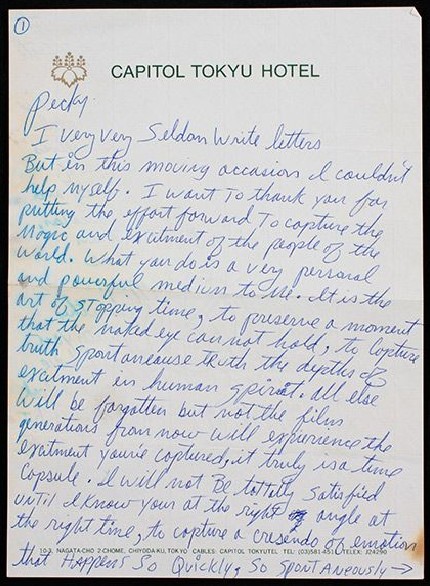 1
CAPITOL TOKYU HOTEL
I very very Seldom write letters
But in this moving occasion I couldn't
help myself. I want to thank you for
putting the effort forward To capture the
Magic and excitment of the people of the
world. What you do is a very personal
and powerful medium to me. It is the
art of stopping time, to preserve a moment
that the naked eye can not hold, to capture
truth spontaneouse truth the depths of
excitment in human spirit. All else
will be forgotten but not the film
generations from now will experience the
excitment youve captured, it truly is a time
Capsule. I will not Be totally satisfied
until I know your at the right angle at
the right time, to capture a cresendo of emotion
10-3, NAGATA-CHO 2-CHOME, CHIYODA-KU, TOKYO CABLES: CAPITOL TOKYUTEL TEL: (03)581-4511 TELEX: J24290
that HAPPENS SO Quickly, So SpontANeously →